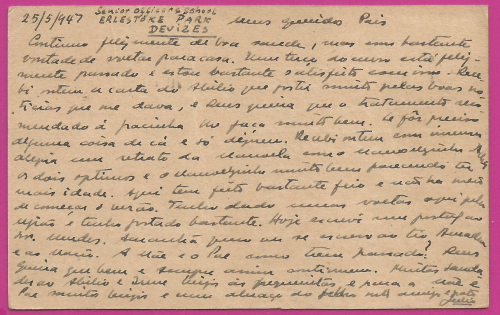 25/5/947 Senior Officers School
ERLESTOKE PARK
DEVIZES
Meus queridos Pais
Continuo felizmente de boa saude, mas com bastante
vontade de voltar para casa. Um terço do curso está feliz-
mente passado e estou bastante satisfeito com isso. Rece-
bi ontem a carta do Abilio que gostei muito pelas boas no-
ticias que me dava, e Deus queira que o tratamento reco-
mendado á faça muito bem. Se fôr preciso
alguma coisa de cá é só dizerem. Recebi ontem com imensa
alegria um retrato da Manoela com o Manoelzinho
os dois optimos e o Manoelzinho muito bem parecendo ter
mais idade. Aqui tem feito bastante frio e não ha meio
de começar o verão. Tenho dado umas voltas aqui pela
região e tenho gostado bastante. Hoje escrevi um postal ao
Dr. Mendes. Amanhã quero ver se escrevo ao tio
e ao A Mãe e o Pae como teem passado? Deus
queira que bem e sempre assim continuem. Muitas sauda-
des ao Abilio e beijos ás pequenitas e para a Mãe e
Pae muitos beijos e um abraço do filho mto amigo e grato
Julio